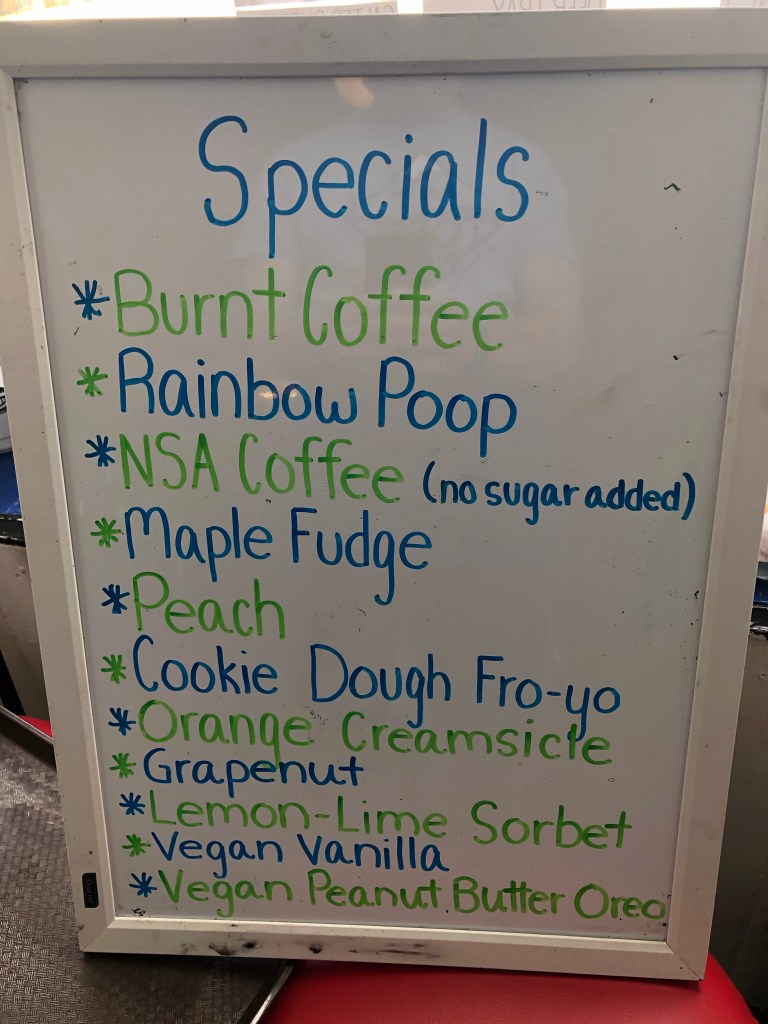 Specials
*Burnt Coffee
*Rainbow Poop
*NSA Coffee (no sugar added)
*Maple Fudge
*Peach
*Cookie Dough Fro-yo
*Orange Creamsicle
*Grapenut
*Lemon-Lime Sorbet
*Vegan Vanilla
*Vegan Peanut Butter Oreo